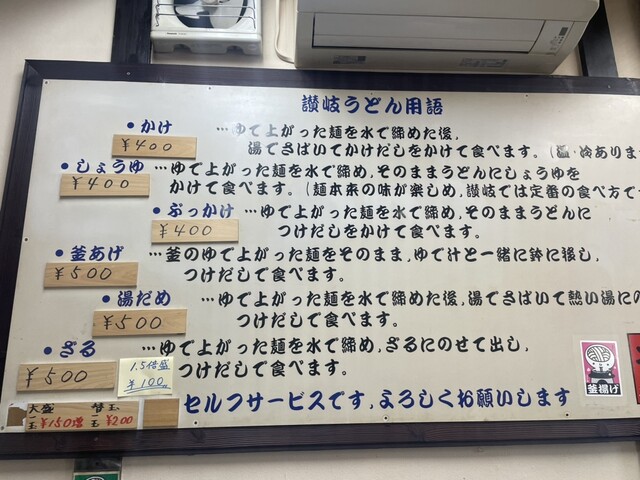 讃岐うどん用語
• かけ …ゆで上がった麺を水で締めた後,
湯でさばいてかけだしをかけて食べます。(温・冷ありま
¥400
• しょうゆ …ゆで上がった麺を水で締め,そのままうどんにしょうゆを
かけて食べます。(麺本来の味が楽しめ,讃岐では定番の食べ方で
¥400
• ぶっかけ …ゆで上がった麺を水で締め,そのままうどんに
つけだしをかけて食べます。
¥400
• 釜あげ …釜のゆで上がった麺をそのまま,ゆで汁と一緒に鉢に移し,
つけだしで食べます。
¥500
• 湯だめ …ゆで上がった麺を水で締めた後,湯でさばいて熱い湯にの
つけだしで食べます。
¥500
• ざる …ゆで上がった麺を水で締め,ざるにのせて出し,
つけだしで食べます。
¥500
1.5倍盛
¥100
大盛 替玉
一玉 ¥150増 一玉 ¥200
セルフサービスです,よろしくお願いします
釜揚げ